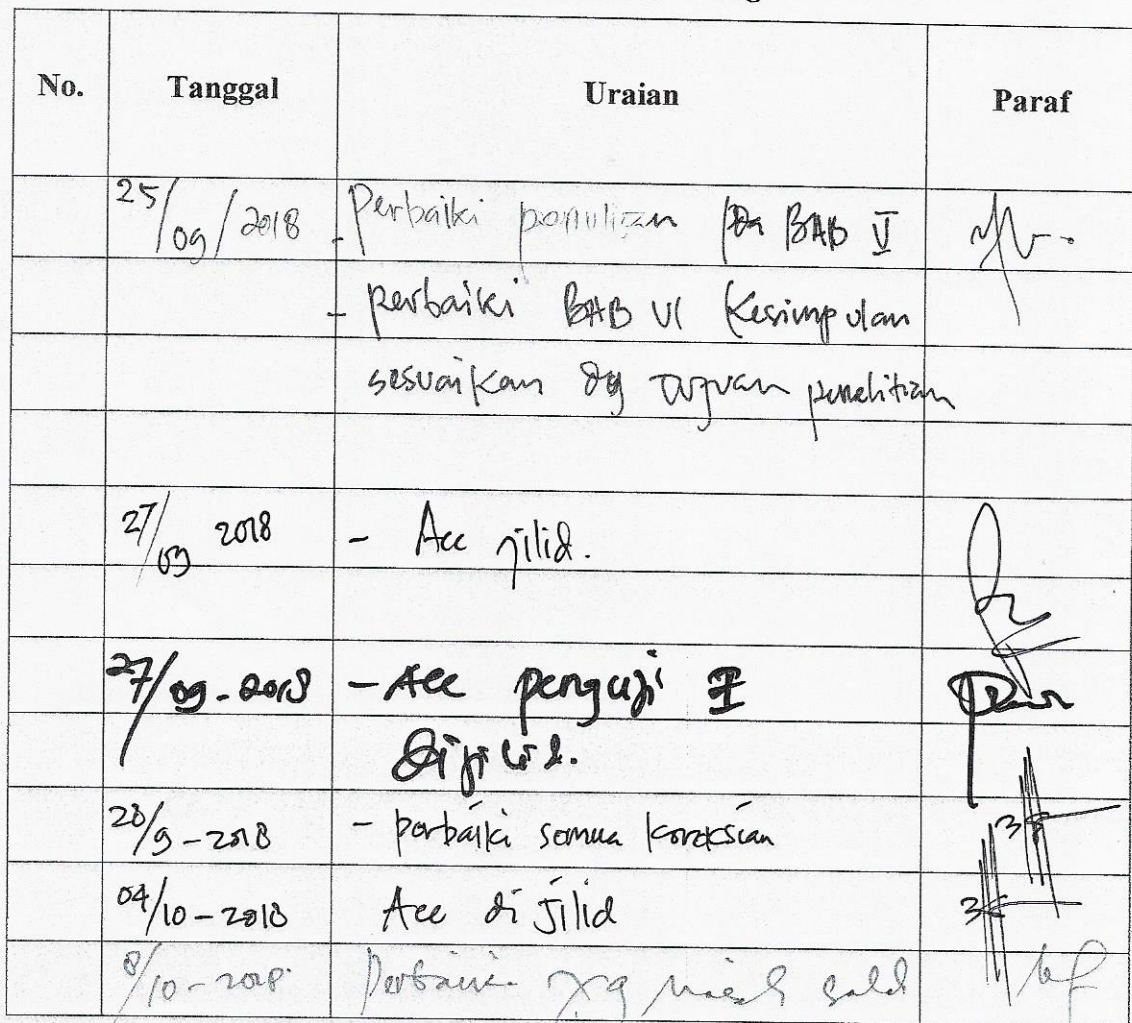 No. Tanggal Uraian Paraf
25/09/2018 - Perbaiki penulisan pd BAB V
- perbaiki BAB VI Kesimpulan
sesuaikan dg tujuan penelitian
27/09 2018 - Acc jilid.
27/09-2018 - Acc penguji I
dijilid.
28/9-2018 - perbaiki semua koreksian
04/10-2018 Acc di jilid
8/10-2018 Perbaiki yg masih salah